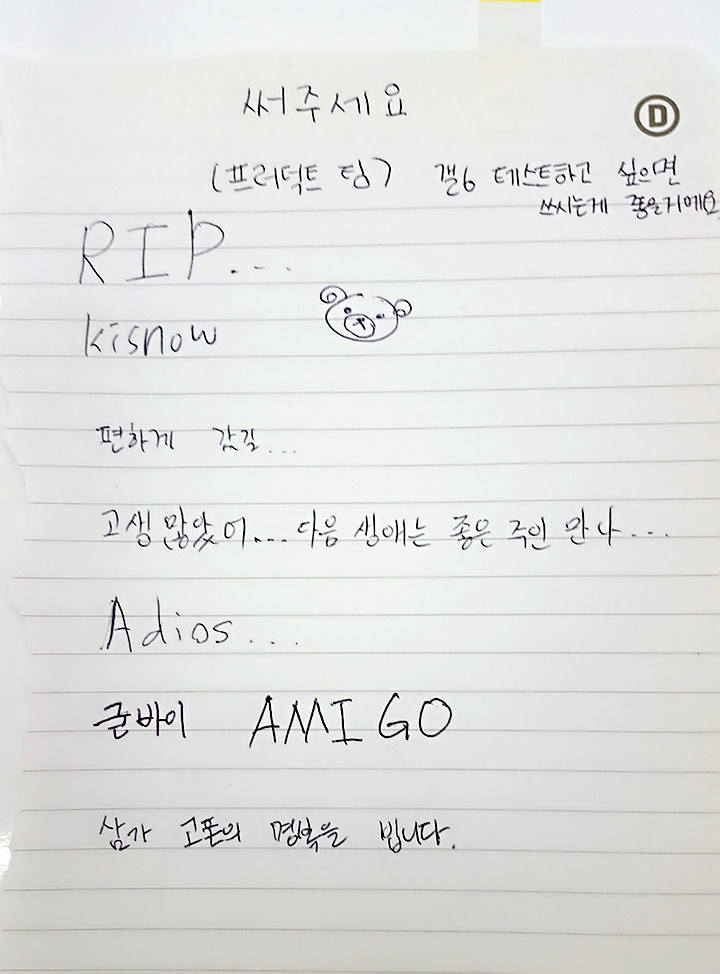 써주세요
D
(프러덕트 팀) 갤6 테스트하고 싶으면
쓰시는게 좋을거에요
RIP...
kisnow
편하게 갔길...
고생 많았어... 다음 생애는 좋은 주인 만나...
Adios...
굳바이 AMIGO
삼가 고폰의 명복을 빕니다.